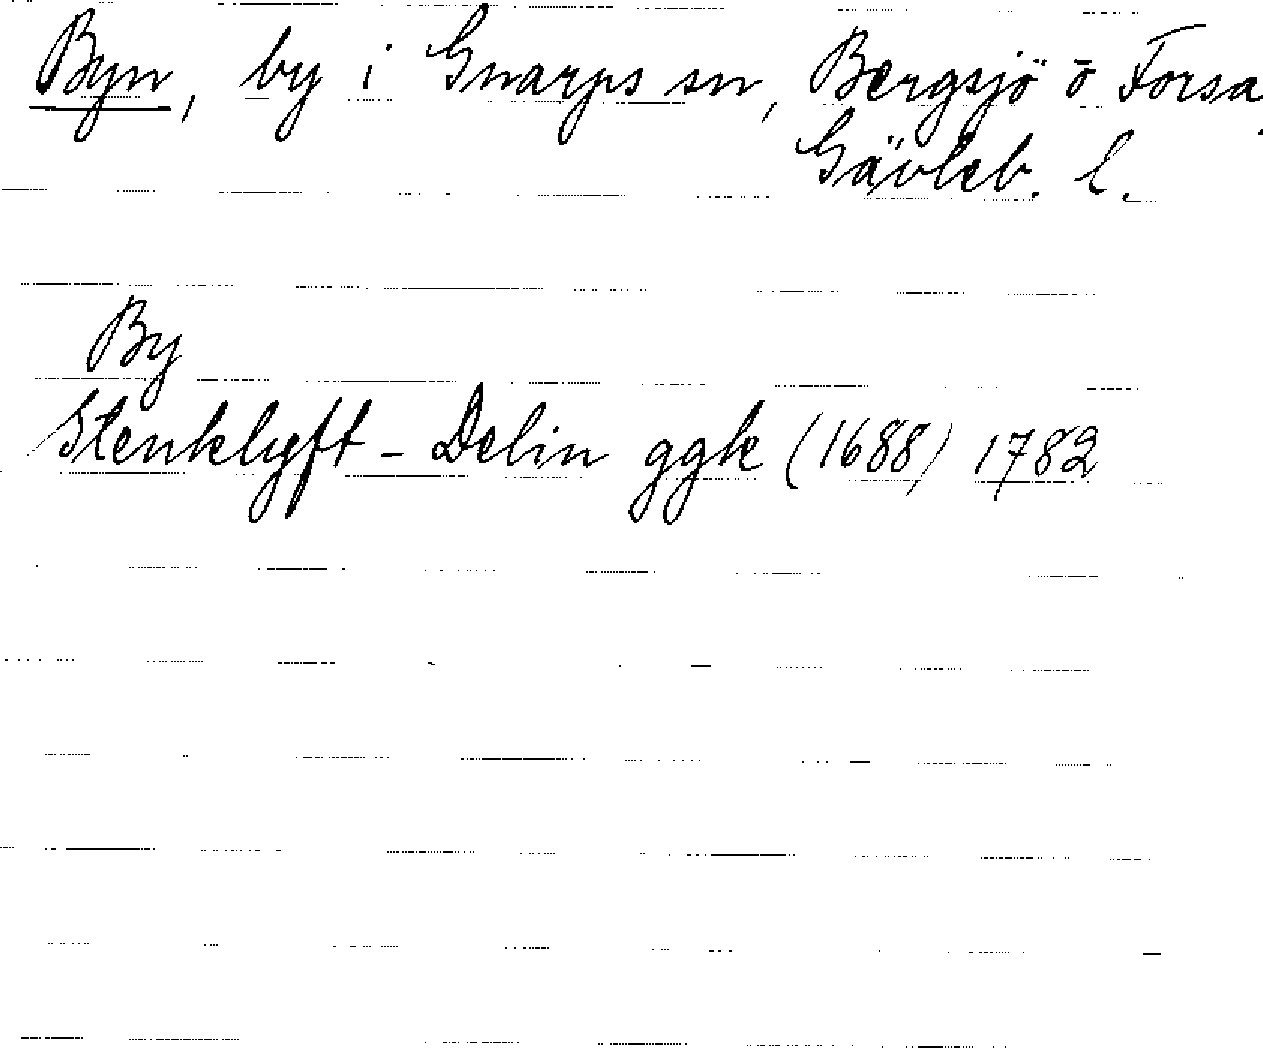 Byn, by i Gnarps sn, Bergsjö o Forsa,
Gävleb. l.
By
Stenklyft - Delin ggk (1688) 1782